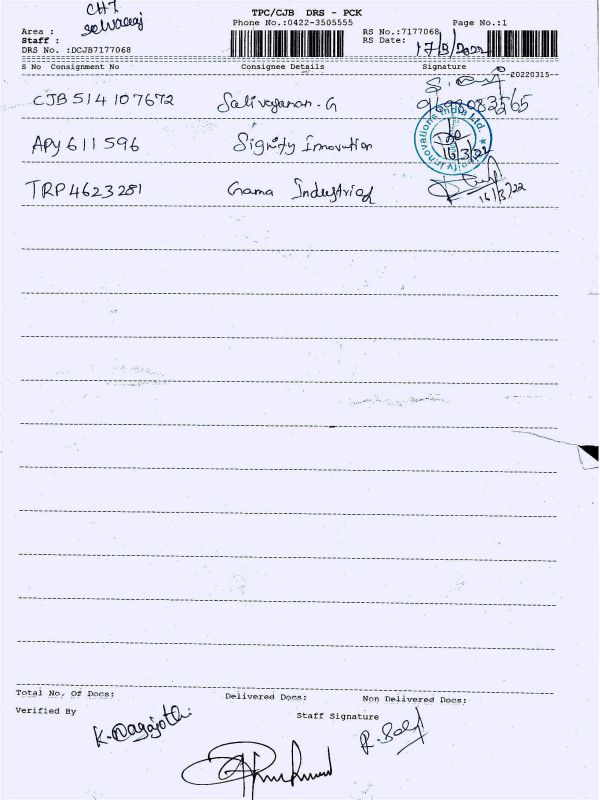 CHT
TPC/CJB DRS - PCK
Phone No.:0422-3505555
RS No.:7177068
Page No.:1
Area : selvaraj
Staff :
RS Date: 17/3/2022
DRS No. :DCJB7177068
S No Consignment No Consignee Details Signature
20220315
CJB 514107672 Salivayanan.G
APY 611596 Signity Innovation 16/3/22
TRP 4623281 Gama Industries 16/3/22
Total No. Of Docs: Delivered Docs: Non Delivered Docs:
Verified By Staff Signature
K. Nagajothi